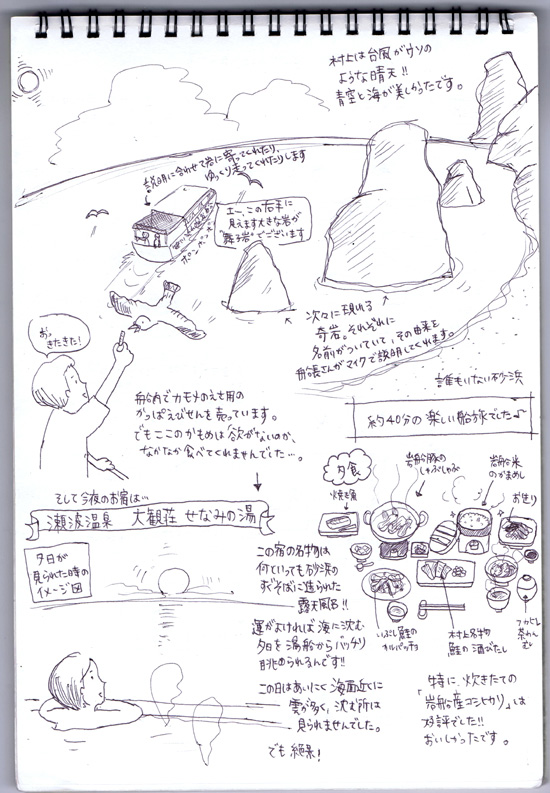 村上は台風がウソの
ような晴天!!
青空と海が美しかったです。
説明に合わせて岩に寄ってくれたり、
ゆっくり走ってくれたりします
ポンポンポン
エー、この右手に
見えます大きな岩が
でございます
次々に現れる
奇岩。それぞれに
名前がついていて、その由来を
船長さんがマイクで説明してくれます。
誰もいない砂浜
約40分の楽しい船旅でした♪
おっ
きたきた!
船内でカモメのえさ用の
かっぱえびせんを売っています。
でもここのかもめは欲がないのか、
なかなか食べてくれませんでした…。
そして今夜のお宿は…
瀬波温泉 大観荘 せなみの湯
夕日が
見られた時の
イメージ図
この宿の名物は
何といっても砂浜の
すぐそばに造られた
露天風呂!!
運がよければ海に沈む
夕日を湯船からバッチリ
眺められるんです!!
この日はあいにく海面近くに
雲が多く、沈む所は
見られませんでした。
でも絶景!
夕食
焼き魚
岩船豚の
しゃぶしゃぶ
岩船米
のかまめし
お造り
いぶし鮭の
カルパッチョ
村上名物
鮭の酒びたし
フカヒレ
茶わん
むし
特に、炊きたての
「岩船産コシヒカリ」は
好評でした!!
おいしかったです。